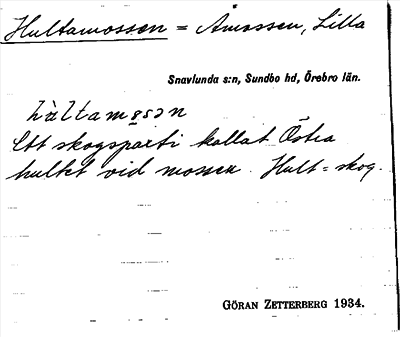 Hultamossen = Åmossen, Lilla
Snavlunda s:n, Sundbo hd, Örebro län.
hùltamǫsən
Ett skogsparti kallat Östra
hultet vid mossen. Hult = skog.
GÖRAN ZETTERBERG 1934.